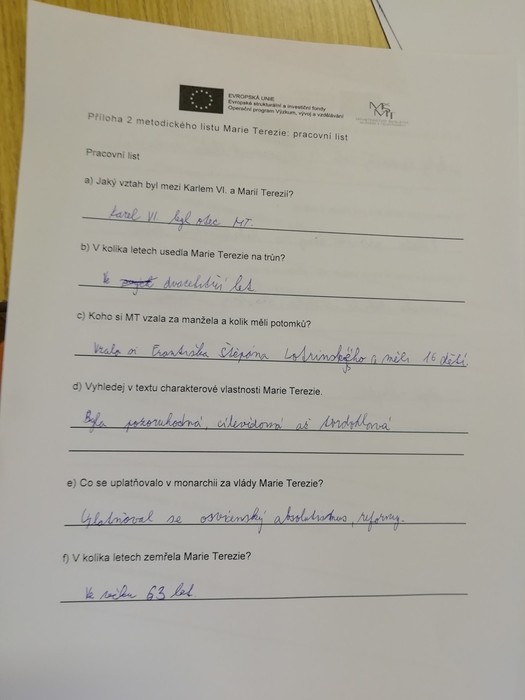 EVROPSKÁ UNIE
Evropské strukturální a investiční fondy
Operační program Výzkum, vývoj a vzdělávání
Příloha 2 metodického listu Marie Terezie: pracovní list
Pracovní list
a) Jaký vztah byl mezi Karlem VI. a Marií Terezií?
Karel VI. byl otec MT.
b) V kolika letech usedla Marie Terezie na trůn?
Ve dvaceti tří let
c) Koho si MT vzala za manžela a kolik měli potomků?
Vzala si Františka Štěpána Lotrinského a měli 16 dětí
d) Vyhledej v textu charakterové vlastnosti Marie Terezie.
Byla pozoruhodná, cílevědomá až tvrdohlavá
e) Co se uplatňovalo v monarchii za vlády Marie Terezie?
Uplatňoval se osvícenský absolutismus, reformy.
f) V kolika letech zemřela Marie Terezie?
Ve věku 63 let